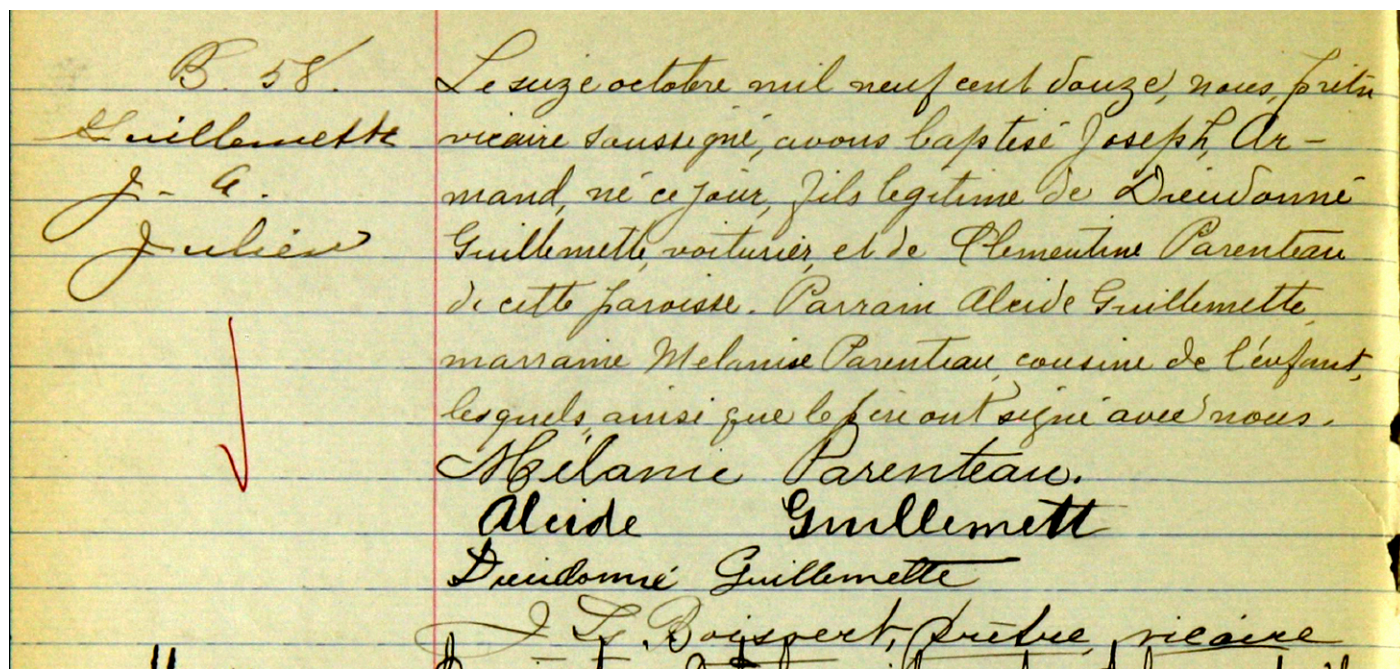 B. 58.
Guillemette
J. A.
Julien
Le seize octobre mil neuf cent douze, nous, prêtre
vicaire soussigné, avons baptisé Joseph, Ar-
mand, né ce jour, fils légitime de Dieudonné
Guillemette, voiturier, et de Clementine Parenteau
de cette paroisse. Parrain Alcide Guillemette,
marraine Melanise Parenteau, cousine de l'enfant,
lesquels, ainsi que le père ont signé avec nous.
Mélanie Parenteau.
Alcide Guillemett
Dieudonné Guillemette
Boisvert, prêtre, vicaire